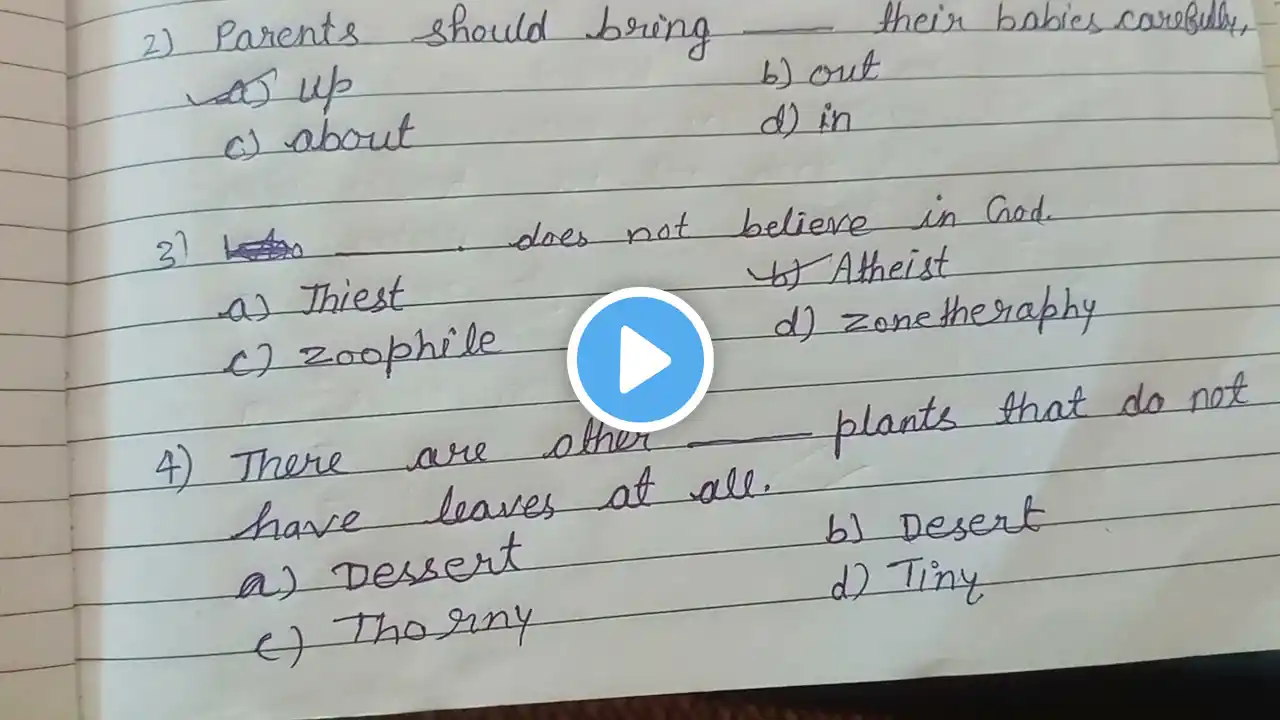 2) Parents should bring ___ their babies carefully.
a) up b) out
c) about d) in
3) ______. does not believe in God.
a) Thiest b) Atheist
c) zoophile d) zonetheraphy
4) There are other ______ plants that do not
have leaves at all.
a) Dessert b) Desert
c) Thorny d) Tiny